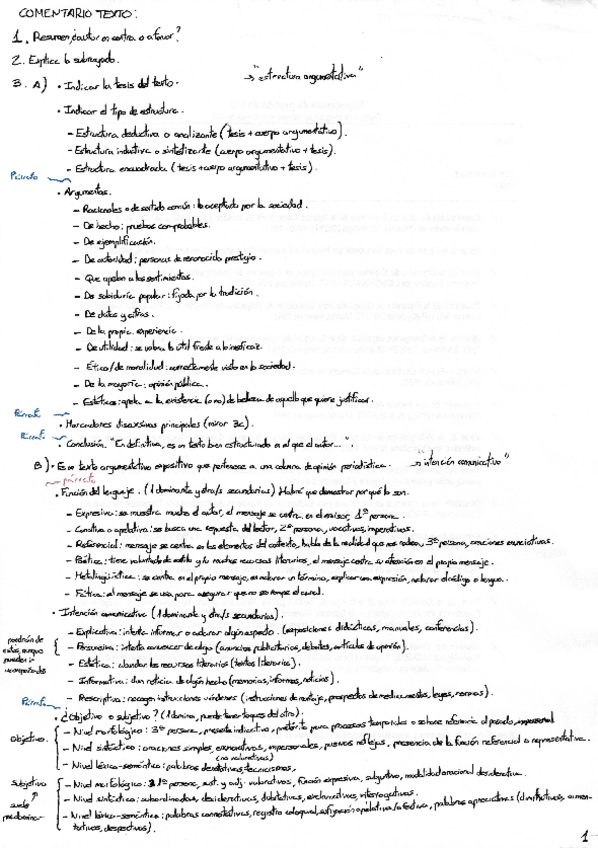 COMENTARIO TEXTO:
1. Resumen, ¿autor en contra o a favor?
2. Explica lo subrayado.
3. A) • Indicar la tesis del texto. → "estructura argumentativa"
• Indicar el tipo de estructura.
- Estructura deductiva o analizante (tesis + cuerpo argumentativo).
- Estructura inductiva o sintetizante (cuerpo argumentativo + tesis).
- Estructura encuadrada (tesis + cuerpo argumentativo + tesis).
Párrafo
• Argumentos.
- Racionales o de sentido común: lo aceptado por la sociedad.
- De hecho: pruebas comprobables.
- De ejemplificación.
- De autoridad: personas de reconocido prestigio.
- Que apelan a los sentimientos.
- De sabiduría popular: fijada por la tradición.
- De datos y cifras.
- De la propia experiencia.
- De utilidad: se valora lo útil frente a lo ineficaz.
- Ético/de moralidad: correctamente visto en la sociedad.
- De la mayoría: opinión pública.
- Estéticos: apela a la existencia (o no) de belleza de aquello que quiere justificar.
Párrafo
• Marcadores discursivos principales (mirar 3c).
Párraf.
• Conclusión. "En definitiva, es un texto bien estructurado en al que el autor...".
B) • Es un texto argumentativo expositivo que pertenece a una columna de opinión periodística. → "intención comunicativa"
párrafo
• Función del lenguaje. (1 dominante y otra/s secundarias) Habrá que demostrar por qué lo son.
- Expresiva: se muestra mucho el autor, el mensaje se centra en el emisor, 1ª persona.
- Conativa o apelativa: se busca una respuesta del lector, 2ª persona, vocativos, imperativos.
- Referencial: mensaje se centra en los elementos del contexto, habla de la realidad que nos rodea, 3ª persona, oraciones enunciativas.
- Poética: tiene voluntad de estilo y hay muchos recursos literarios, el mensaje centra su atención en el propio mensaje.
- Metalingüística: se centra en el propio mensaje, en aclarar un término, explicar una expresión, aclarar el código o lengua.
- Fática: el mensaje se usa para asegurar que no se rompe el canal.
• Intención comunicativa (1 dominante y otra/s secundarias).
- Explicativa: intenta informar o aclarar algún aspecto. (exposiciones didácticas, manuales, conferencias).
- Persuasiva: intenta convencer de algo (anuncios publicitarios, debates, artículos de opinión).
- Estética: abundan los recursos literarios (textos literarios).
- Informativa: dan noticia de algún hecho (memorias, informes, noticias).
- Prescriptiva: recogen instrucciones u órdenes (instrucciones de montaje, prospectos de medicamentos, leyes, normas).
Párrafo
• ¿Objetivo o subjetivo? (1 domina, puede tener toques del otro).
Objetivo.
- Nivel morfológico: 3ª persona, presente indicativo, pretérito para procesos temporales o se hace referencia al pasado, impersonal
- Nivel sintáctico: oraciones simples, enunciativas, impersonales, pasivas reflejas, presencia de la función referencial o representativa.
(no valorativos)
- Nivel léxico-semántico: palabras denotativas, tecnicismos,
Subjetivo
- Nivel morfológico: 1ª persona, sust. y adj. valorativos, función expresiva, subjuntivo, modalidad oracional desiderativa.
- Nivel sintáctico: subordinadas, desiderativas, dubitativas, exclamativas, interrogativas.
- Nivel léxico-semántico: palabras connotativas, registro coloquial, palabras apreciativas (diminutivos, aumentativos, despectivos).
1